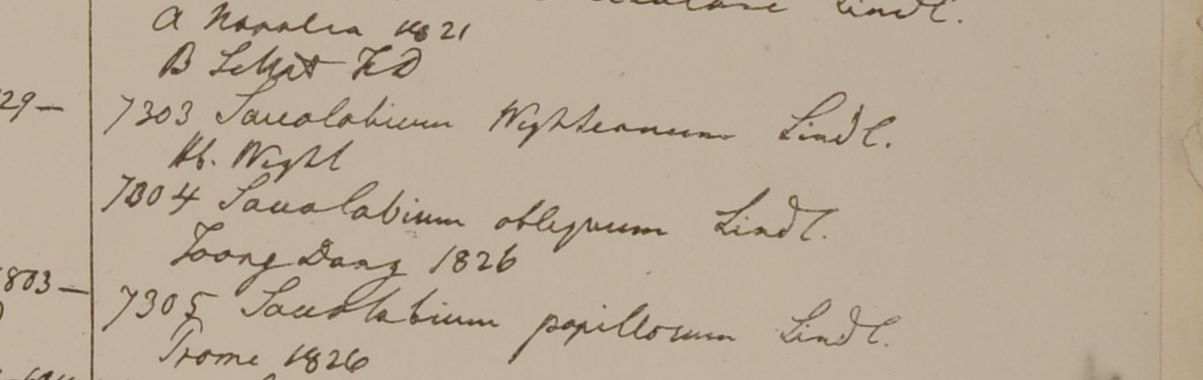 Lindl.
A Noralia 1821
B Sehet HD
29—
7303 Saccolabium Wightianum Lindl.
Hb. Wight
7304 Saccolabium obliquum Lindl.
Toong Dang 1826
803—
7305 Saccolabium papillosum Lindl.
Prome 1826